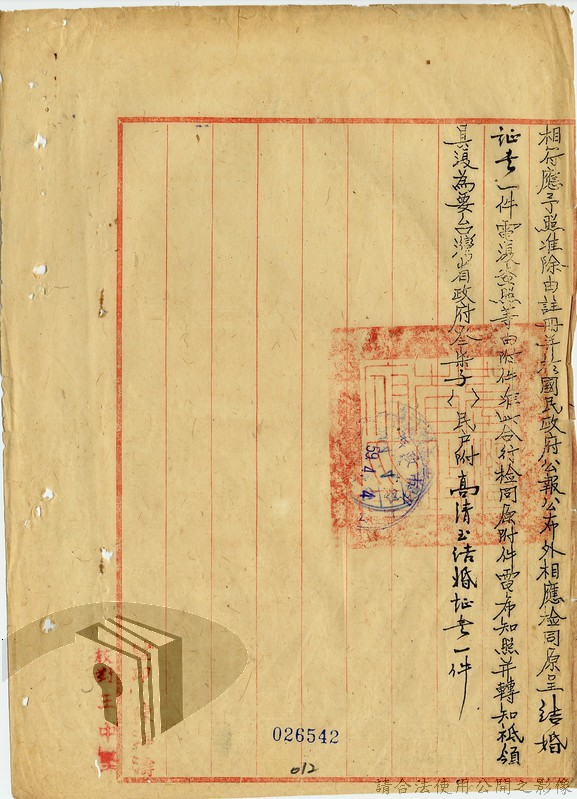 相符應予照准除由註冊并於國民政府公報公布外相應檢同原呈結婚
証書一件電復查照等由附件准此合行檢同原附件電希知照并轉知祗領
具復為要台灣省政府 民戶附高清玉結婚証書一件
59.4.4
校對王中
026542
012
請合法使用公開之影像